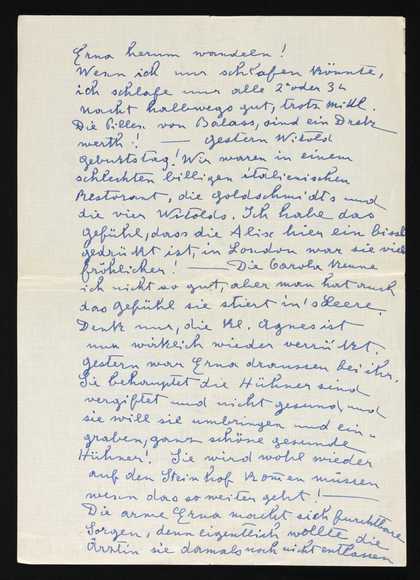 Erna herum wandeln!
Wenn ich nur schlafen könnte,
ich schlafe nur alle 2te oder 3te
Nacht halbwegs gut, trotz Mittl.
Die Pillen von Balass, sind ein Dreck
werth! — Gestern Witold
Geburtstag! Wir waren in einem
schlechten billigen italienischen
Restorant, die Goldschmidt's und
die vier Witolds. Ich habe das
Gefühl, dass die Alix hier ein bissl
gedrükt ist, in London war sie viel
fröhlicher! — Die Carola kenne
ich nicht so gut, aber man hat auch
das Gefühl sie stiert in's Leere.
Denk nur, die kl. Agnes ist
nun wirklich wieder verrükt.
Gestern war Erna draussen bei ihr.
Sie behauptet die Hühner sind
vergiftet und nicht gesund, und
sie will sie umbringen und ein-
graben, ganz schöne gesunde
Hühner! Sie wird wohl wieder
auf den Steinhof komen müssen
wenn das so weiter geht! —
Die arme Erna macht sich furchtbare
Sorgen, denn eigentlich wollte die
Ärztin sie damals noch nicht entlassen